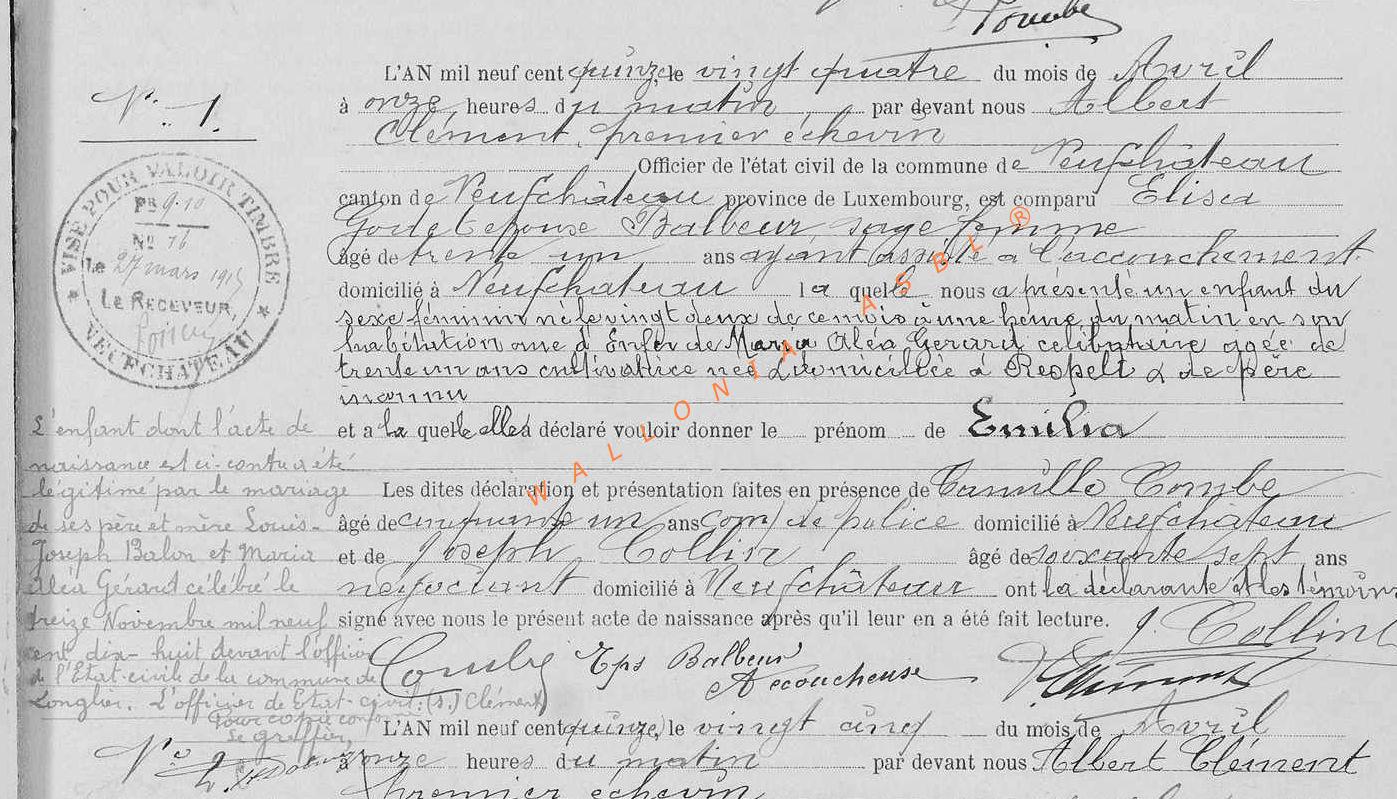 Combe
N° 1.
VISÉ POUR VALOIR TIMBRE
F° 9.10
N° 16
le 27 mars 1915
LE RECEVEUR,
NEUFCHATEAU
L'AN mil neuf cent quinze, le vingt quatre du mois de Avril
à onze heures du matin, par devant nous Albert
Clément, premier échevin
Officier de l'état civil de la commune de Neufchâteau
canton de Neufchâteau province de Luxembourg, est comparu Elisa
épouse Balbeur sage femme
âgé de trente un ans ayant assisté à l'accouchement
domicilié à Neufchateau la quelle nous a présenté un enfant du
sexe féminin né le vingt deux de ce mois à une heure du matin en son
habitation rue d'Enfer de Maria Aléa Gérard célibataire agée de
trente un ans cultivatrice née & domiciliée à Respelt & de père
inconnu
et a la quelle elle a déclaré vouloir donner le prénom de Emilia
Les dites déclaration et présentation faites en présence de Camille Combe
âgé de cinquante un ans com. de police domicilié à Neufchâteau
et de Joseph Collin âgé de soixante sept ans
négociant domicilié à Neufchâteau ont la déclarante et les témoins
signé avec nous le présent acte de naissance après qu'il leur en a été fait lecture.
J. Collin
Combe Eps Balbeur
Accoucheuse
Clément
L'enfant dont l'acte de
naissance est ci-contre a été
légitimé par le mariage
de ses père et mère Louis-
Joseph Balon et Maria
Aléa Gérard célébré le
treize Novembre mil neuf
cent dix-huit devant l'officier
de l'Etat-civil de la commune de
Longlier. L'officier de l'Etat-civil: (s.) Clément
Pour copie conf.
Le greffier,
L'AN mil neuf cent quinze, le vingt cinq du mois de Avril
N° 2.
à onze heures du matin par devant nous Albert Clément
premier échevin
WALLONIA ASBL ®